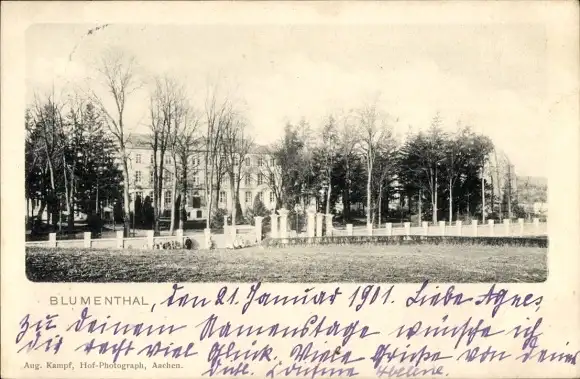 BLUMENTHAL, den 21. Januar 1901. Liebe Agnes,
zu deinem Namenstage wünsche ich
dir recht viel Glück. Viele Grüße von deiner
Helene
Aug. Kampf, Hof-Photograph, Aachen.